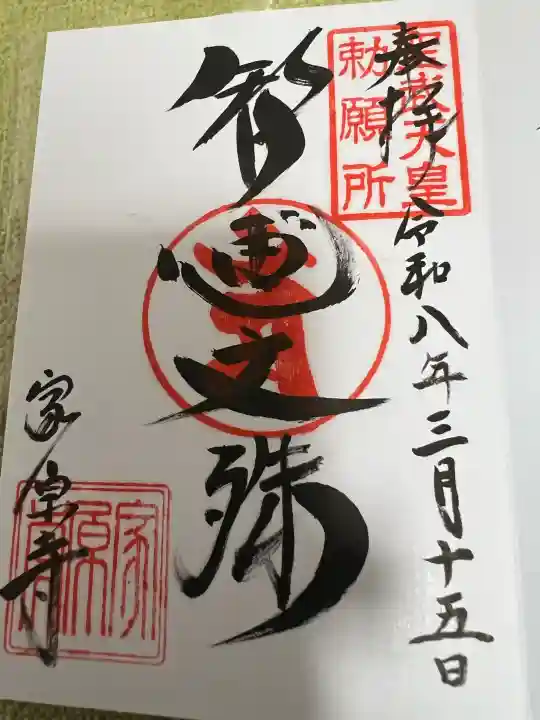 奉拝 令和八年三月十五日
聖武天皇
勅願所
智恵文殊
家原寺
家原寺